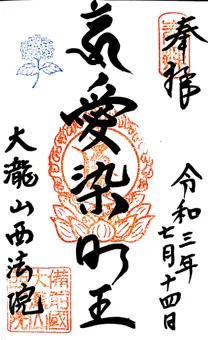 奉拝
令和三年
七月十四日
愛染明王
大瀧山西法院
備前國